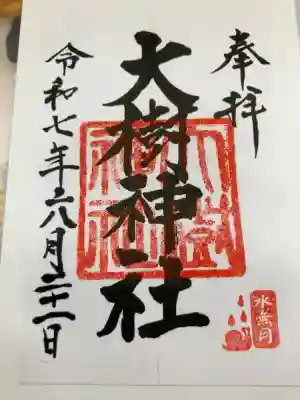 奉拝
大樹神社
令和七年六月二十一日
大樹
神社
水無月